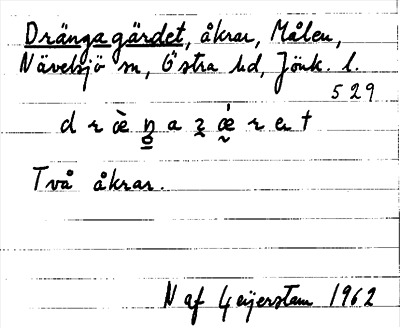 Drängagärdet, åkrar, Målen,
Nävelsjö sn, Östra hd, Jönk. l.
529
d r æ̀ ŋ a z æ̇ r e t
Två åkrar.
N af Geijerstam 1962